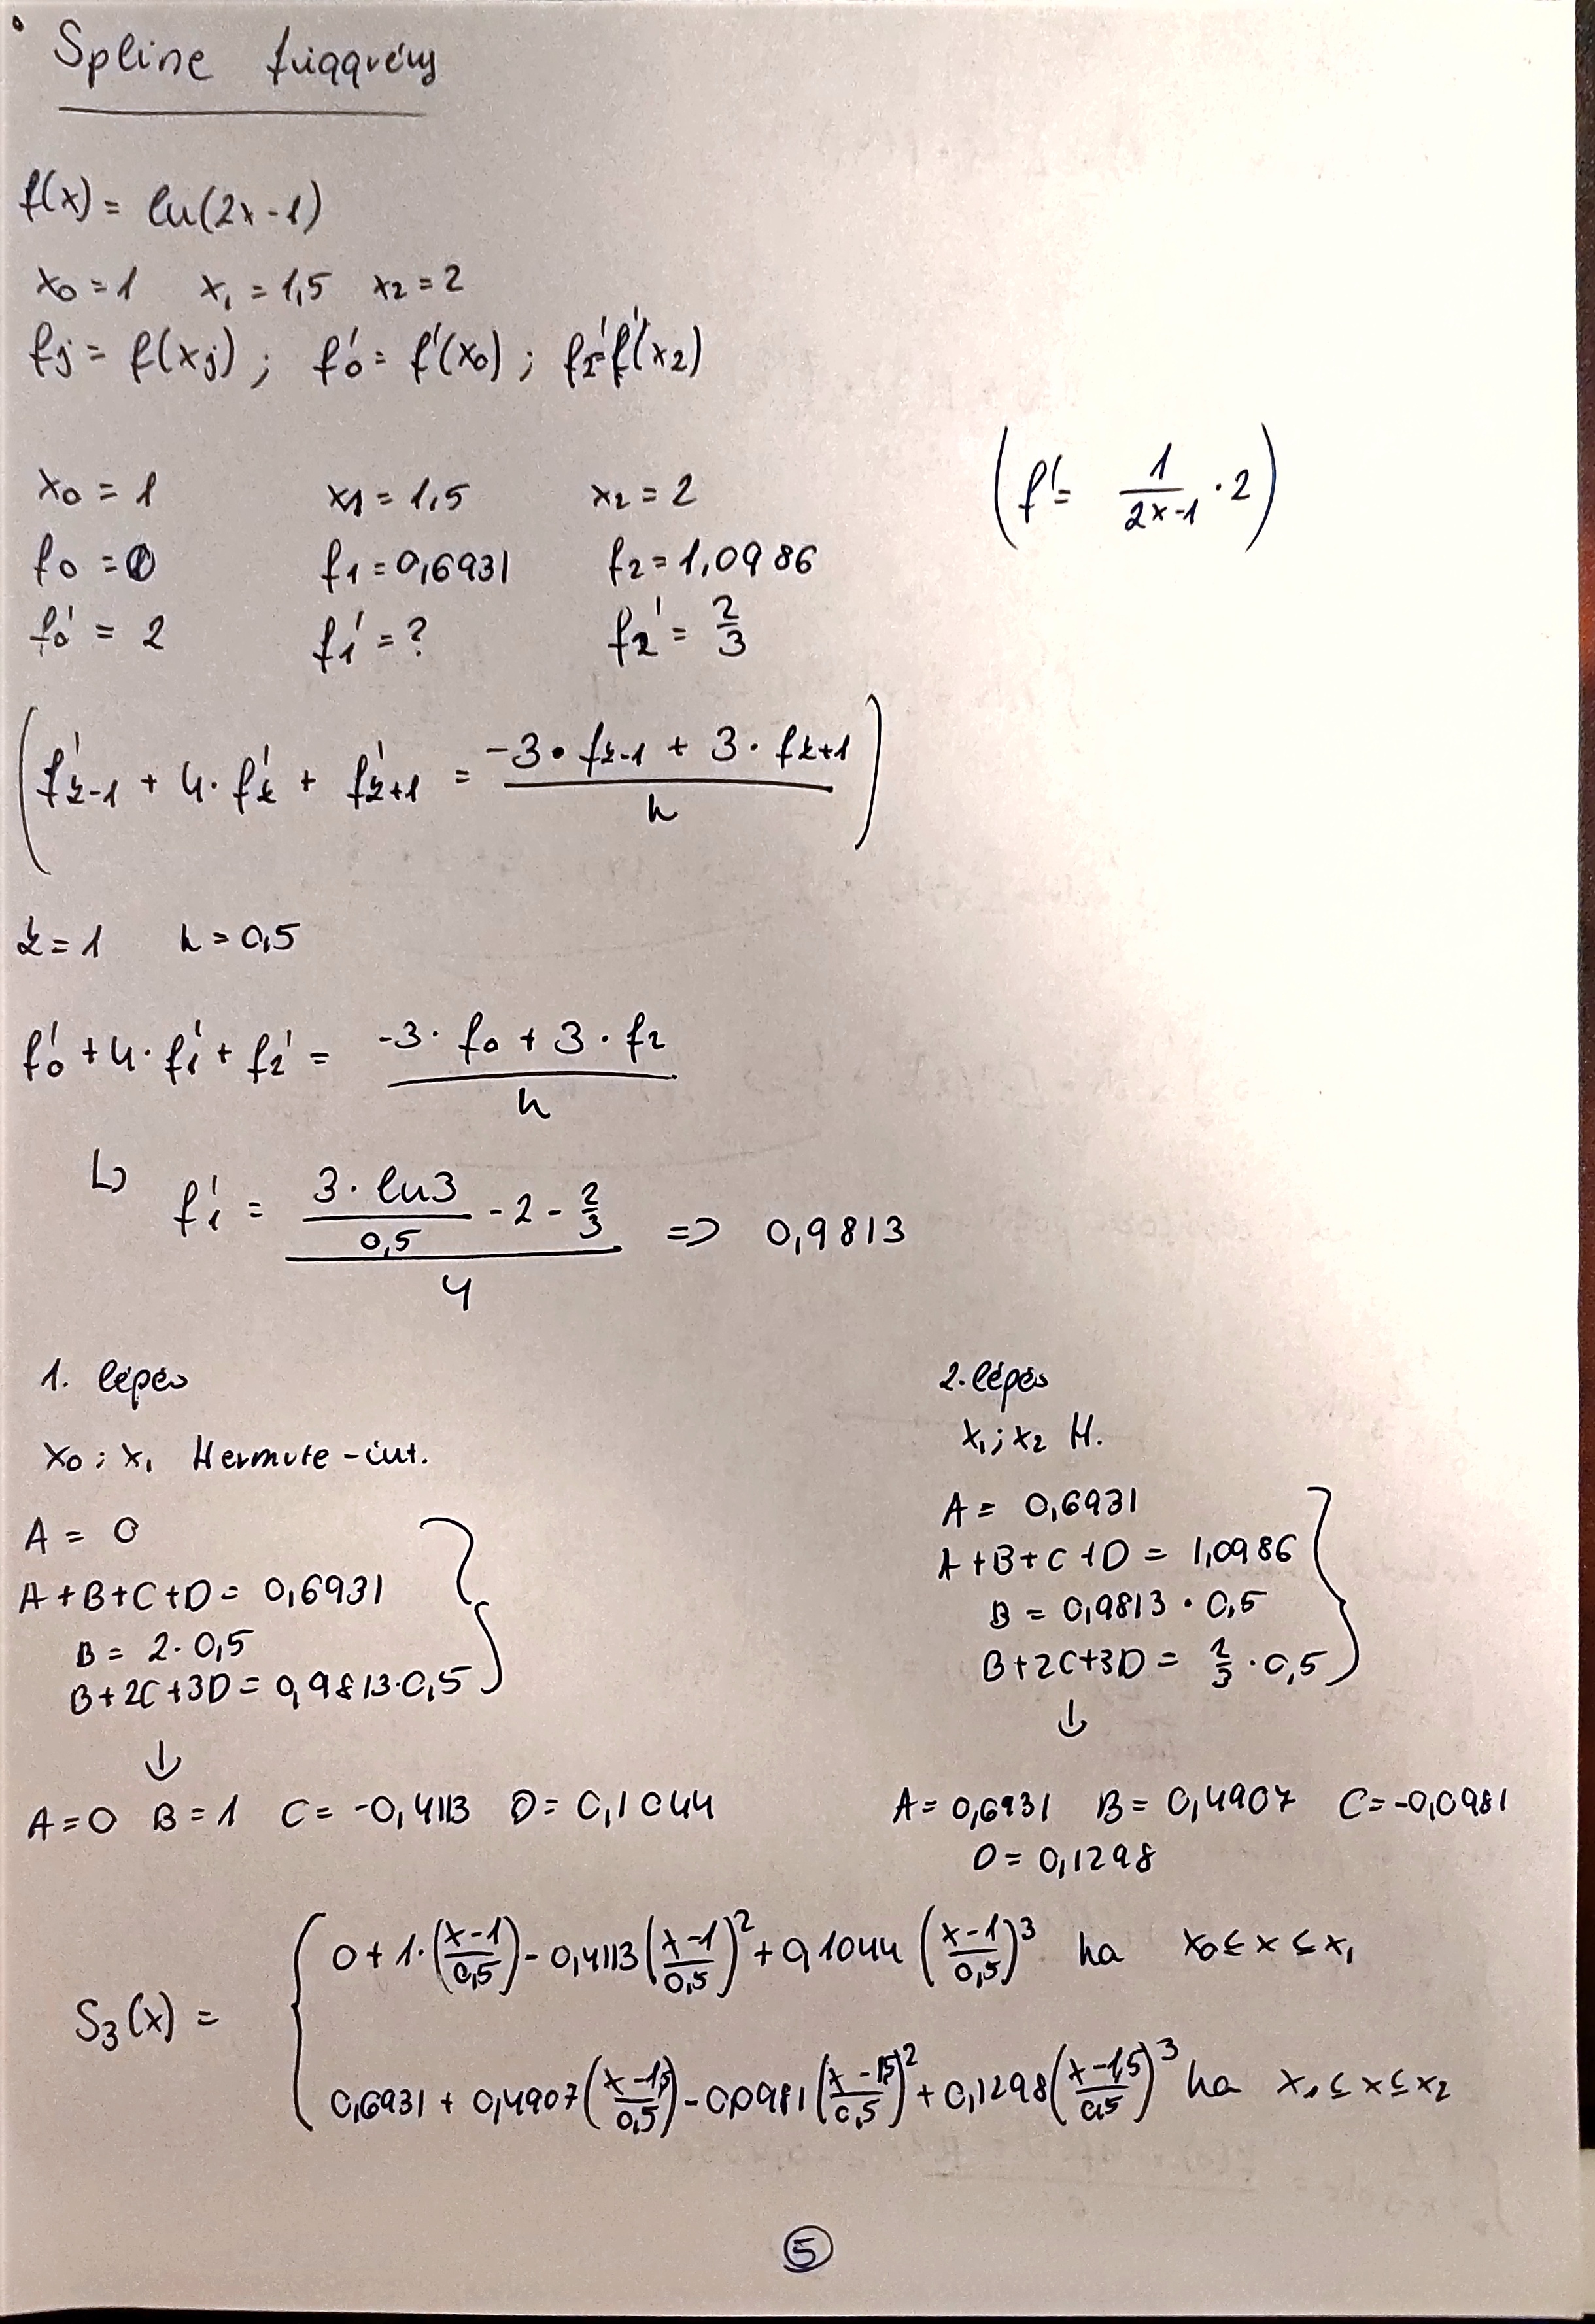 Spline függvény
f(x) = ln(2x-1)
x₀ = 1 x₁ = 1,5 x₂ = 2
fj = f(xj) ; f₀' = f'(x₀) ; f₂' = f'(x₂)
x₀ = 1 x₁ = 1,5 x₂ = 2
(f' = 1/(2x-1) · 2)
f₀ = 0 f₁ = 0,6931 f₂ = 1,0986
f₀' = 2 f₁' = ? f₂' = 2/3
(f'k-1 + 4 · f'k + f'k+1 = (-3 · fk-1 + 3 · fk+1)/h)
k = 1 h = 0,5
f₀' + 4 · f₁' + f₂' = (-3 · f₀ + 3 · f₂)/h
↳ f₁' = ((3 · ln3)/0,5 - 2 - 2/3)/4 => 0,9813
1. lépés
x₀ ; x₁ Hermite-int.
A = 0
A + B + C + D = 0,6931
B = 2 · 0,5
B + 2C + 3D = 0,9813 · 0,5
↓
A = 0 B = 1 C = -0,4113 D = 0,1044
2. lépés
x₁ ; x₂ H.
A = 0,6931
A + B + C + D = 1,0986
B = 0,9813 · 0,5
B + 2C + 3D = 2/3 · 0,5
↓
A = 0,6931 B = 0,4907 C = -0,0981
D = 0,1298
S₃(x) = { 0 + 1 · ((x-1)/0,5) - 0,4113 ((x-1)/0,5)² + 0,1044 ((x-1)/0,5)³ ha x₀ ≤ x ≤ x₁
0,6931 + 0,4907 ((x-1,5)/0,5) - 0,0981 ((x-1,5)/0,5)² + 0,1298 ((x-1,5)/0,5)³ ha x₁ ≤ x ≤ x₂
5